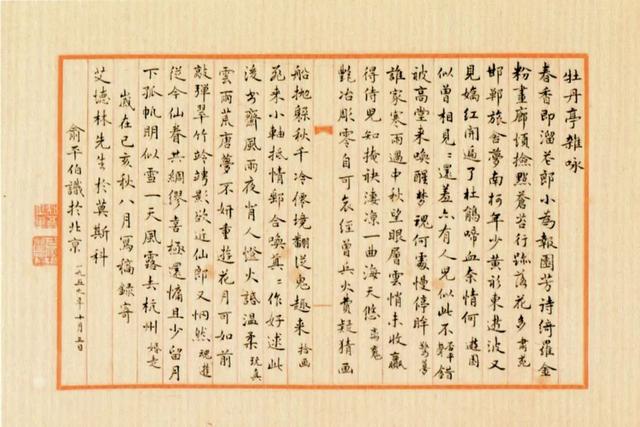 牡丹亭雜咏
春香即溜卷郎小為報園芳詩倚羅金
粉畫廊煩撿點蒼苔行跡落花多 肅苑
邯鄲旅舍夢南柯年少黃衫東遊波又
見嬌紅開遍了杜鵑啼血奈情何 遊園
似曾相見々還羞亦有人兒似此不平聲錯
被高堂來喚醒夢魂何處慢停眸 驚夢
誰家寒雨過中秋望眼層雲悄未收贏
得侍兒知掩袂淒凉一曲海天悠 離魂
艷冶彫零自可哀經曾兵火費疑猜画
船抛躲秋千冷像境翻從鬼趣來 拾画
飛來小軸抵情郵合喚真々作好逑此
後書齋風雨夜肖人燈火話溫柔 玩真
雲雨荒唐夢不妍重遊花月可如前
敲彈翠竹竛竮影欲近仙郎又惘然 魂遊
從今仙眷共綢繆喜極還慵且少留月
下孤帆明似雪一天風露去杭州 婚走
歲在己亥秋八月寫稿錄寄
艾德林先生於莫斯科
俞平伯識於北京 一九五九年十月五日